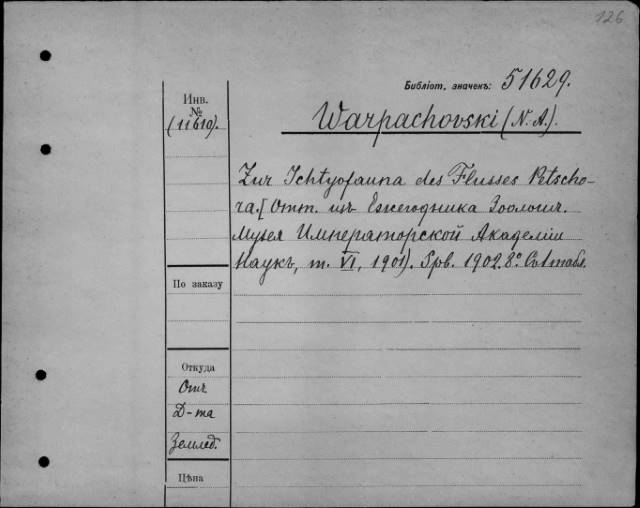 126
Библіот. значекъ: 51629.
Инв.
№
(11610).
Warpachovski (N. A.).
Zur Ichtyofauna des Flusses Petscho-
ra. [Отт. изъ Ежегодника Зоологич.
Музея Императорской Академіи
Наукъ, т. VI, 1901). Spb. 1902. 8°.
По заказу
Откуда
Отъ
Д-та
Землед.
Цѣна